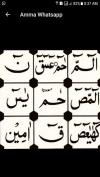 8:37 AM
Amma Whatsapp
الٓمّٓ حٰمٓ عٓسٓقٓ نٓ
الٓمّٓصٓ حٰمٓ يٰسٓ
كٓهٰيٰعٓصٓ قٓ اٰمِيْن